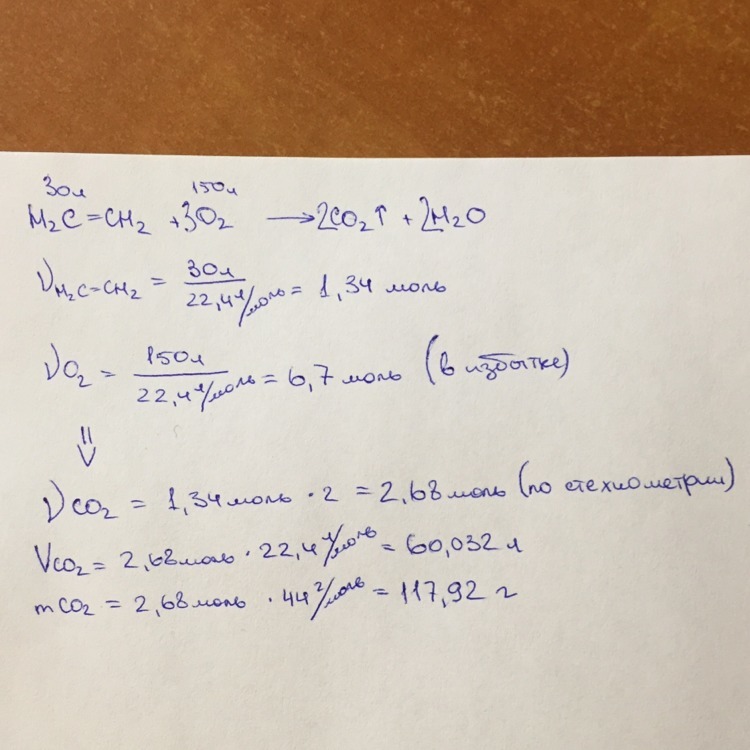 30л 150л
H₂C=CH₂ +3O₂ ⟶ 2CO₂↑ + 2H₂O
ν H₂C=CH₂ = 30л / 22,4 л/моль = 1,34 моль
νO₂ = 150л / 22,4 л/моль = 6,7 моль (в избытке)
⇓
νCO₂ = 1,34 моль · 2 = 2,68 моль (по стехиометрии)
VCO₂ = 2,68 моль · 22,4 л/моль = 60,032 л
mCO₂ = 2,68 моль · 44 г/моль = 117,92 г